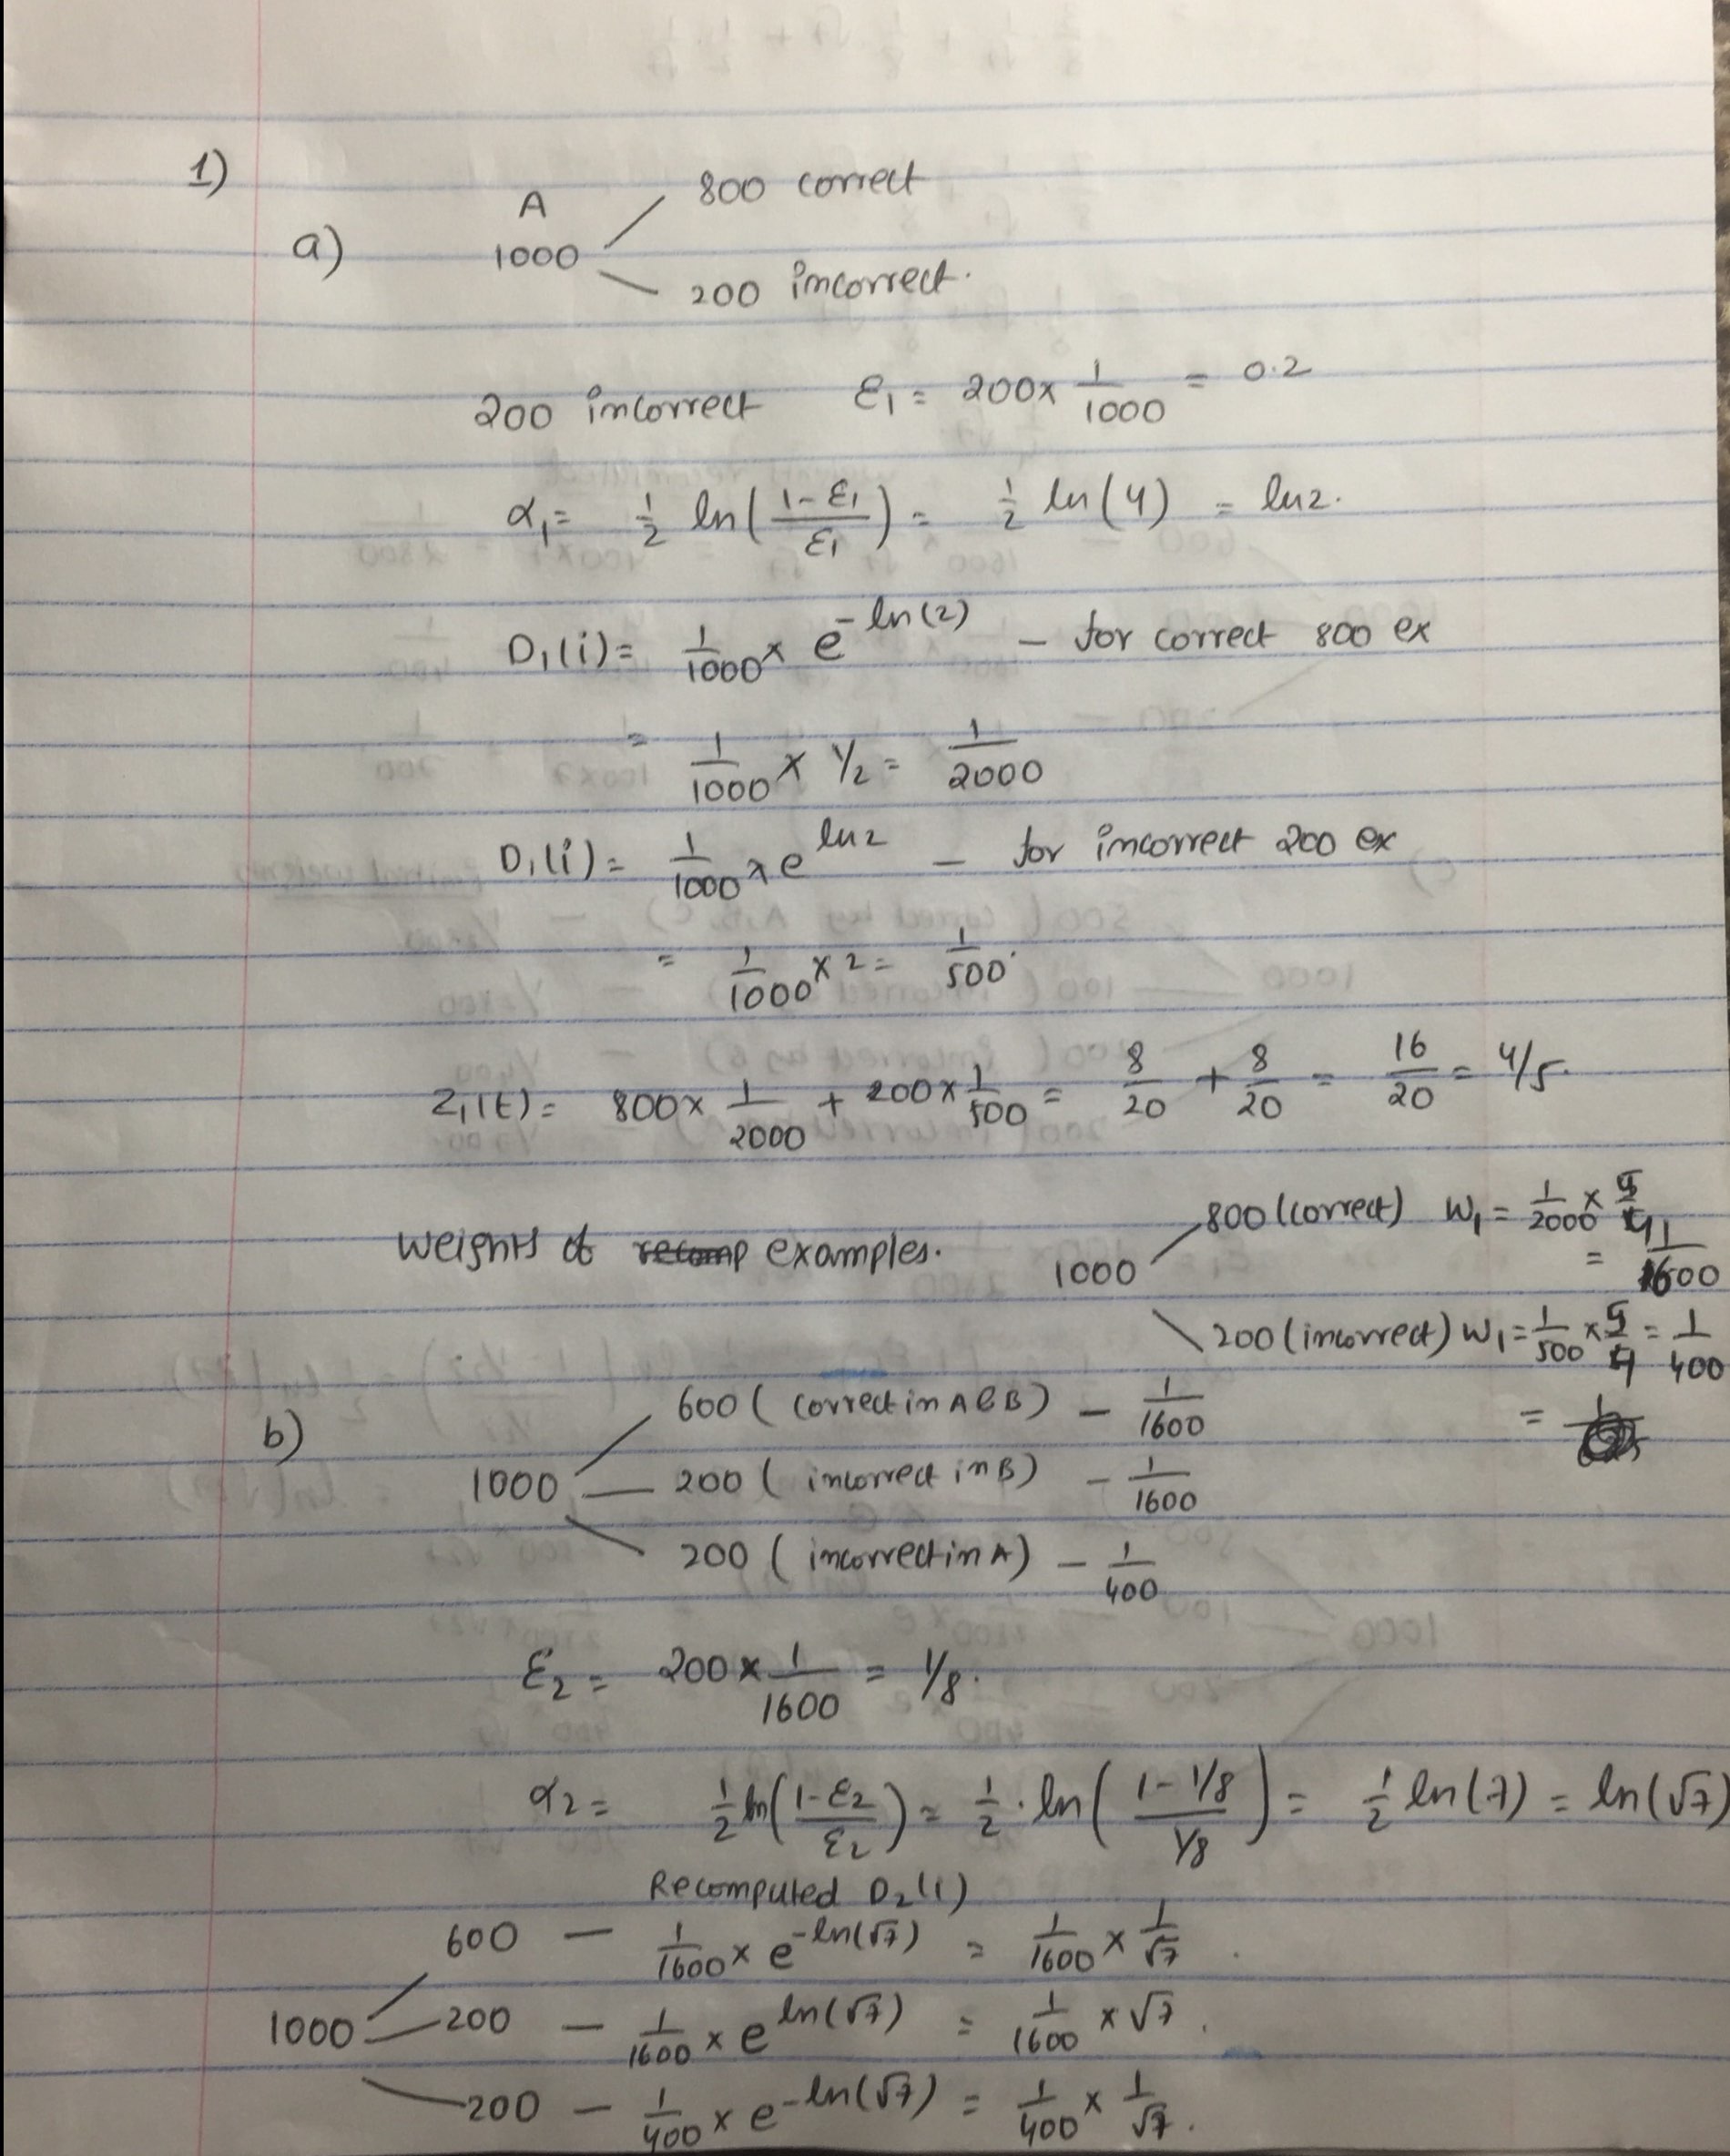 1)
800 correct
A
a) 1000
200 incorrect.
200 incorrect ε₁ = 200 x 1/1000 = 0.2
α₁ = 1/2 ln((1-ε₁)/ε₁) = 1/2 ln(4) = ln2.
D₁(i) = 1/1000 x e^-ln(2) – for correct 800 ex
= 1/1000 x 1/2 = 1/2000
D₁(i) = 1/1000 x e^ln2 – for incorrect 200 ex
= 1/1000 x 2 = 1/500.
Z₁(t) = 800 x 1/2000 + 200 x 1/500 = 8/20 + 8/20 = 16/20 = 4/5.
800 (correct) W₁ = 1/2000 x 5/4
Weights of examples. 1000 = 1/1600
200 (incorrect) W₁ = 1/500 x 5/4 = 1/400
=
600 ( correct in A & B) – 1/1600
b) 1000 — 200 ( incorrect in B) – 1/1600
200 ( incorrect in A) – 1/400
ε₂ = 200 x 1/1600 = 1/8.
α₂ = 1/2 ln((1-ε₂)/ε₂) = 1/2 . ln((1-1/8)/(1/8)) = 1/2 ln(7) = ln(√7)
Recomputed D₂(i)
600 – 1/1600 x e^-ln(√7) = 1/1600 x 1/√7 .
1000 — 200 – 1/1600 x e^ln(√7) = 1/1600 x √7 .
200 – 1/400 x e^-ln(√7) = 1/400 x 1/√7 .